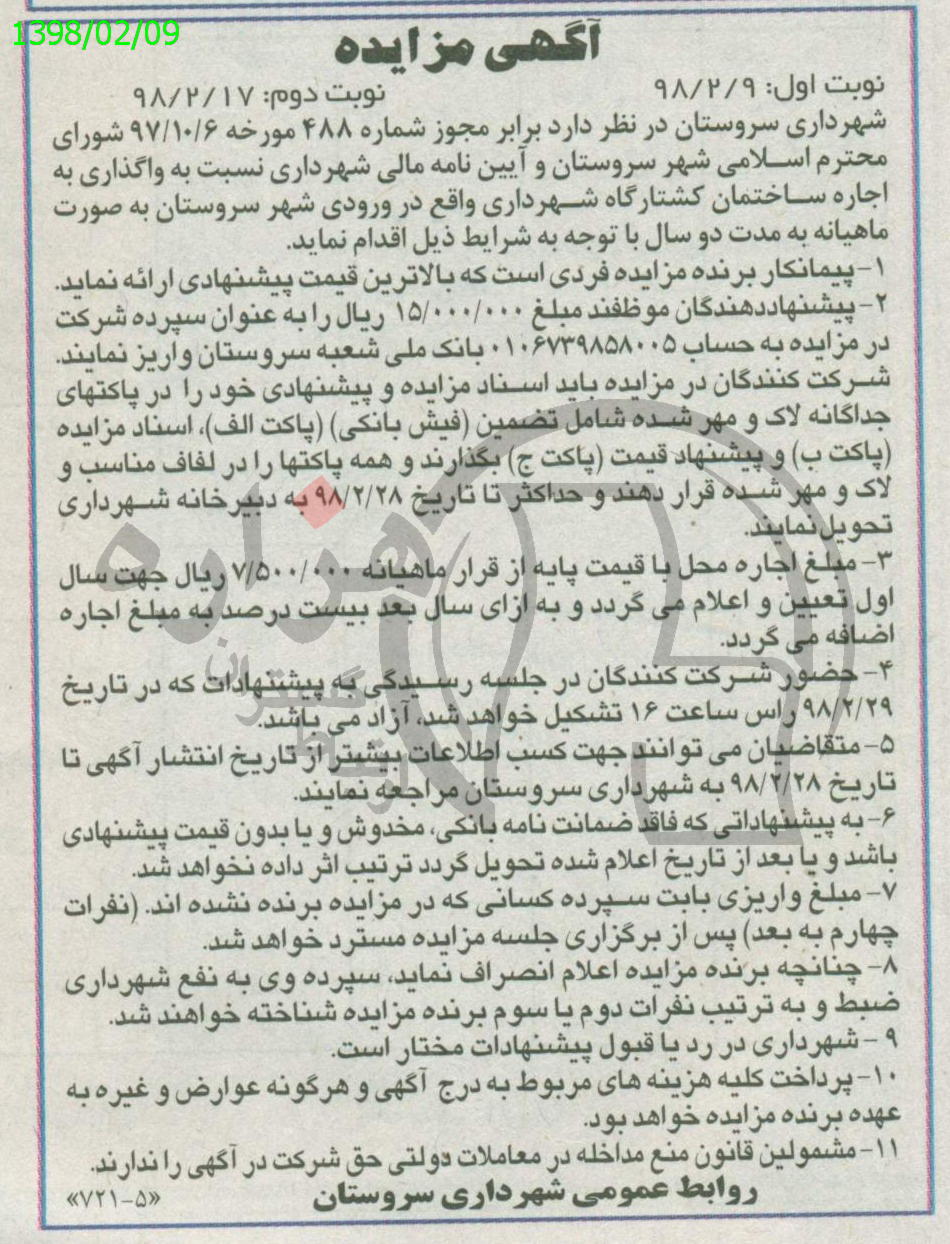 1398/02/09
آگهی مزایده
نوبت اول: ۹۸/۲/۹ نوبت دوم: ۹۸/۲/۱۷
شهرداری سروستان در نظر دارد برابر مجوز شماره ۴۸۸ مورخه ۹۷/۱۰/۶ شورای
محترم اسلامی شهر سروستان و آیین نامه مالی شهرداری نسبت به واگذاری به
اجاره ساختمان کشتارگاه شهرداری واقع در ورودی شهر سروستان به صورت
ماهیانه به مدت دو سال با توجه به شرایط ذیل اقدام نماید.
۱-پیمانکار برنده مزایده فردی است که بالاترین قیمت پیشنهادی ارائه نماید.
۲-پیشنهاددهندگان موظفند مبلغ ۱۵/۰۰۰/۰۰۰ ریال را به عنوان سپرده شرکت
در مزایده به حساب ۰۱۰۶۷۳۹۸۵۸۰۰۵ بانک ملی شعبه سروستان واریز نمایند.
شرکت کنندگان در مزایده باید اسناد مزایده و پیشنهادی خود را در پاکتهای
جداگانه لاک و مهر شده شامل تضمین (فیش بانکی) (پاکت الف)، اسناد مزایده
(پاکت ب) و پیشنهاد قیمت (پاکت ج) بگذارند و همه پاکتها را در لفاف مناسب و
لاک و مهر شده قرار دهند و حداکثر تا تاریخ ۹۸/۲/۲۸ به دبیرخانه شهرداری
تحویل نمایند.
۳- مبلغ اجاره محل با قیمت پایه از قرار ماهیانه ۷/۵۰۰/۰۰۰ ریال جهت سال
اول تعیین و اعلام می گردد و به ازای سال بعد بیست درصد به مبلغ اجاره
اضافه می گردد.
۴- حضور شرکت کنندگان در جلسه رسیدگی به پیشنهادات که در تاریخ
۹۸/۲/۲۹ راس ساعت ۱۶ تشکیل خواهد شد، آزاد می باشد.
۵- متقاضیان می توانند جهت کسب اطلاعات بیشتر از تاریخ انتشار آگهی تا
تاریخ ۹۸/۲/۲۸ به شهرداری سروستان مراجعه نمایند.
۶- به پیشنهاداتی که فاقد ضمانت نامه بانکی، مخدوش و یا بدون قیمت پیشنهادی
باشد و یا بعد از تاریخ اعلام شده تحویل گردد ترتیب اثر داده نخواهد شد.
۷- مبلغ واریزی بابت سپرده کسانی که در مزایده برنده نشده اند. (نفرات
چهارم به بعد) پس از برگزاری جلسه مزایده مسترد خواهد شد.
۸- چنانچه برنده مزایده اعلام انصراف نماید، سپرده وی به نفع شهرداری
ضبط و به ترتیب نفرات دوم یا سوم برنده مزایده شناخته خواهند شد.
۹ - شهرداری در رد یا قبول پیشنهادات مختار است.
۱۰- پرداخت کلیه هزینه های مربوط به درج آگهی و هرگونه عوارض و غیره به
عهده برنده مزایده خواهد بود.
۱۱- مشمولین قانون منع مداخله در معاملات دولتی حق شرکت در آگهی را ندارند.
روابط عمومی شهرداری سروستان «۷۲۱-۵»